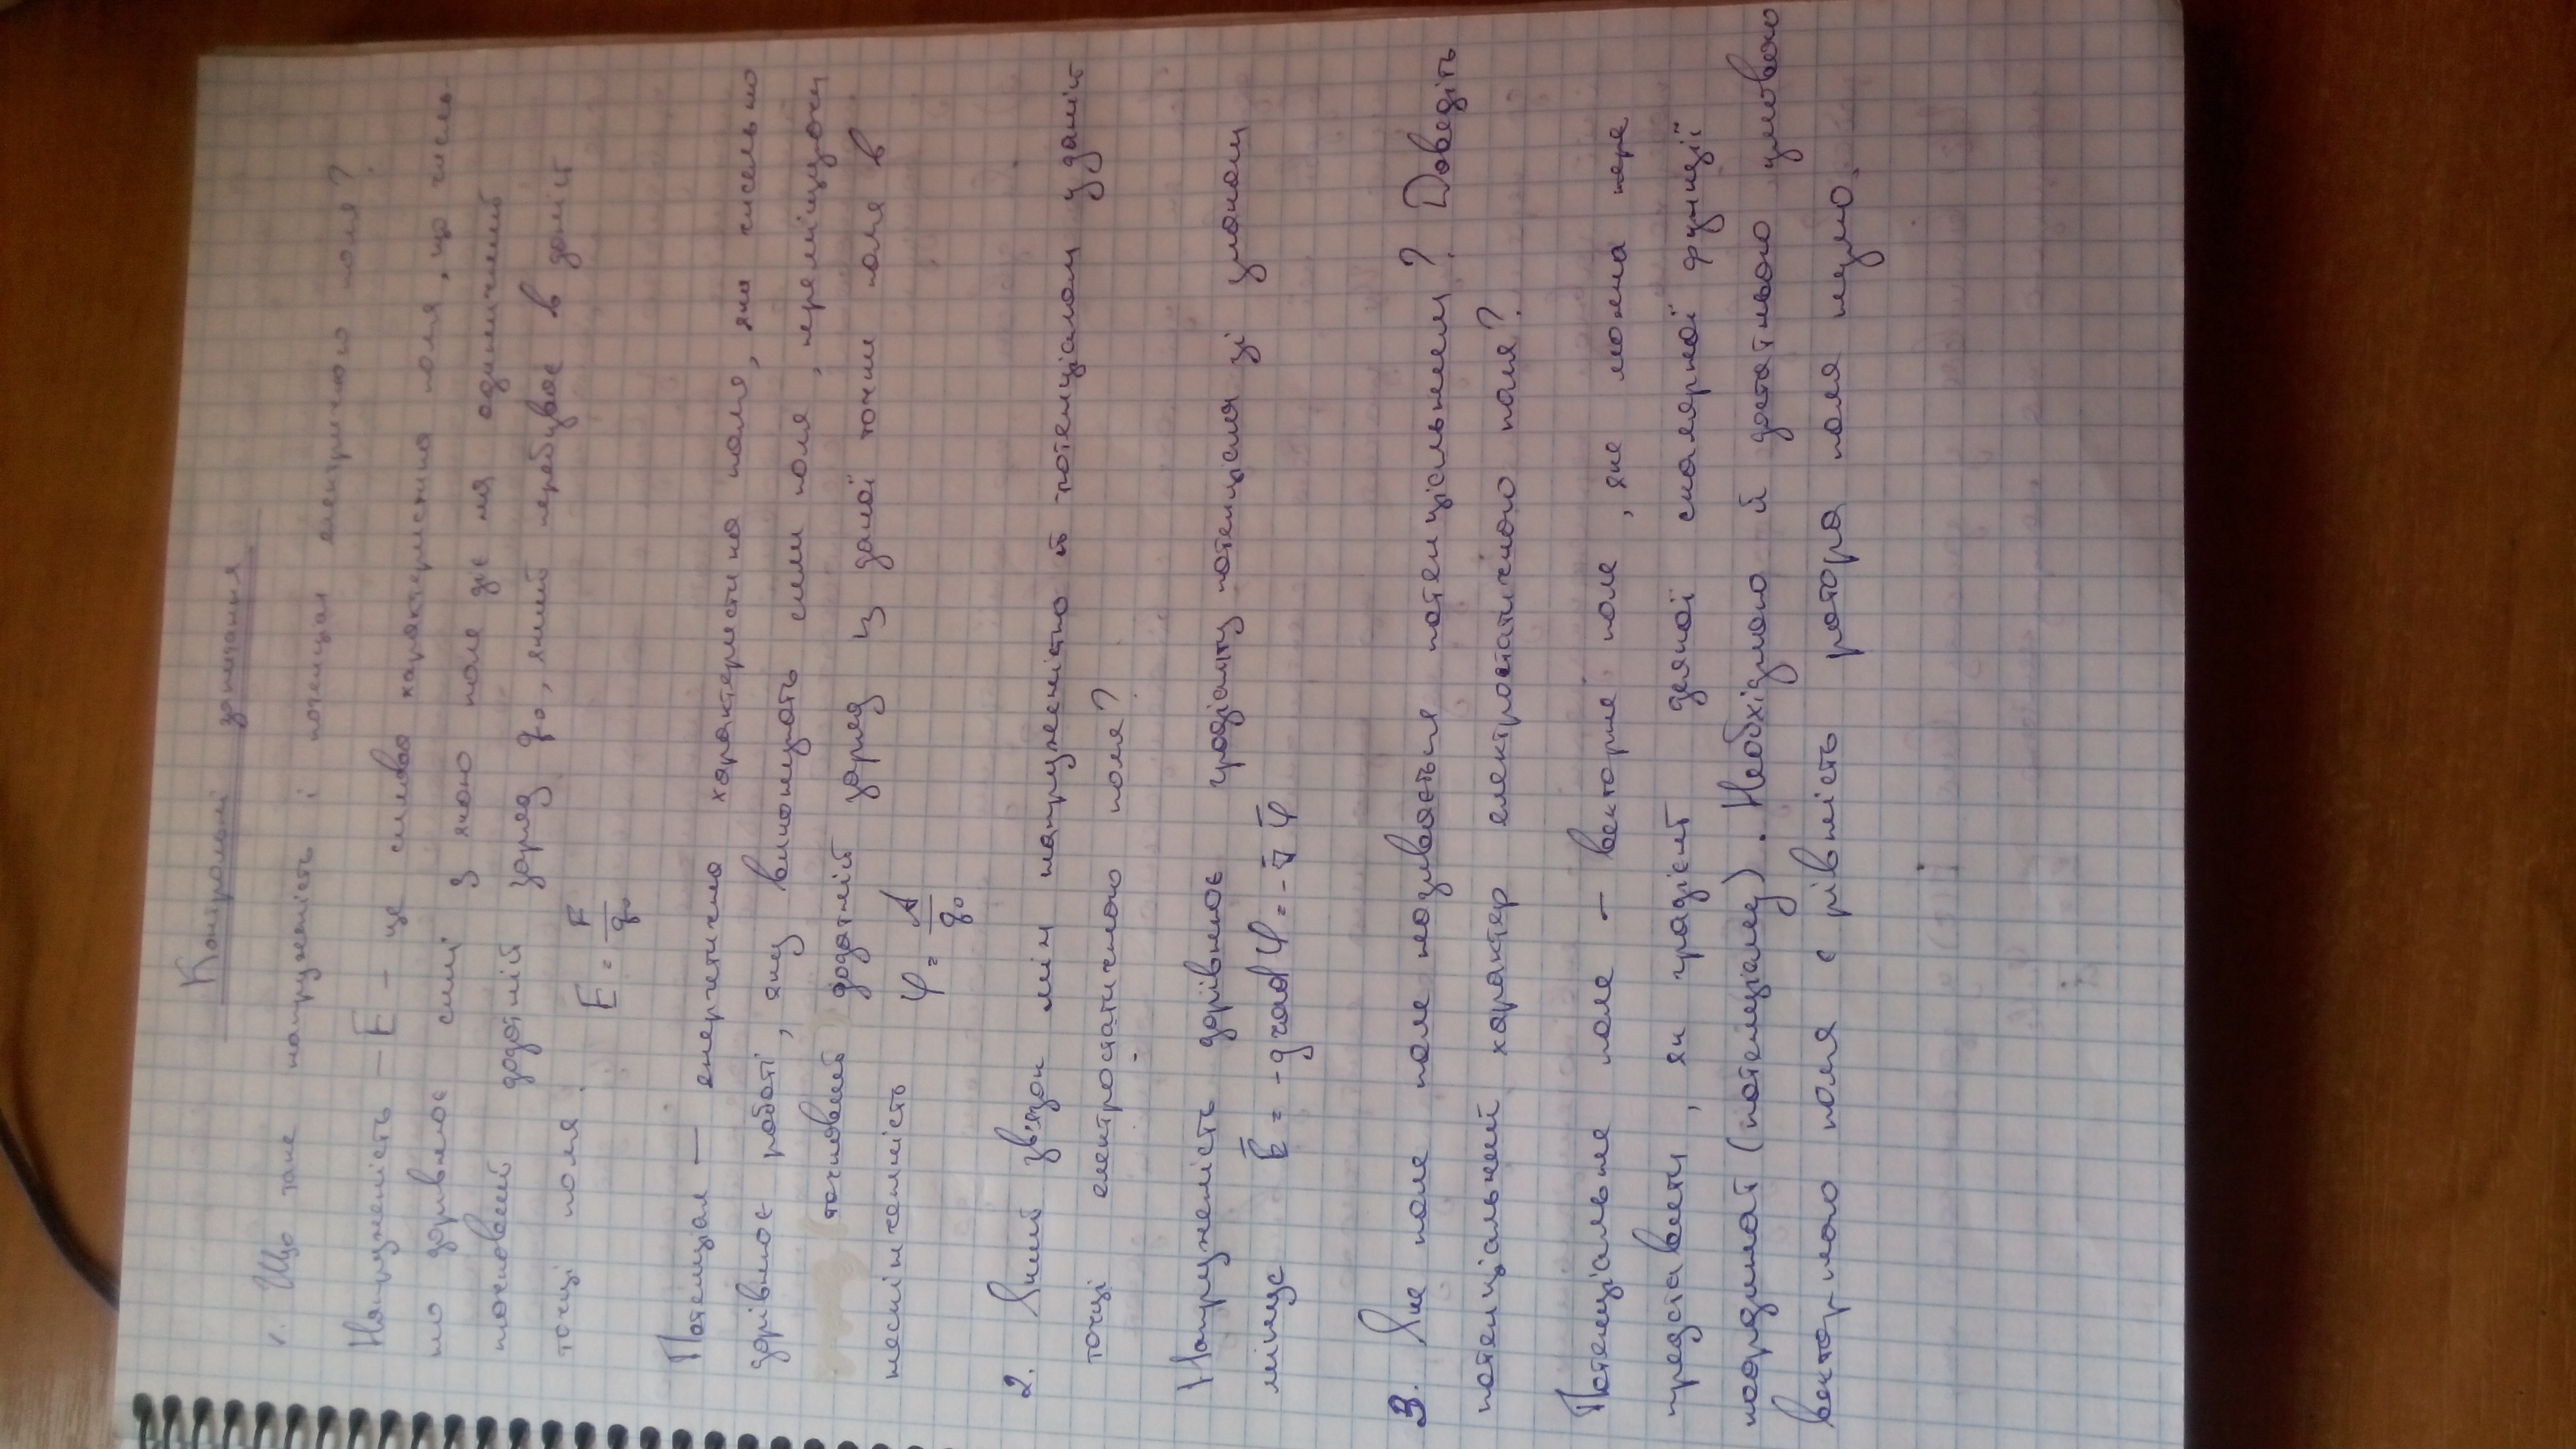 Контрольні запитання
1. Що таке напруженість і потенціал електричного поля?
Напруженість – E – це силова характеристика поля, що чисель-
но дорівнює силі з якою поле діє на одиничний
точковий додатній заряд q₀, який перебуває в даній
точці поля.
E = F/q₀
Потенціал – енергетична характеристика поля, яка чисельно
дорівнює роботі, яку виконують сили поля, переміщуючи
точковий додатній заряд із даної точки поля в
нескінченність φ = A/q₀
2. Який зв'язок між напруженістю й потенціалом у даній
точці електростатичного поля?
Напруженість дорівнює градієнту потенціала зі знаком
мінус E̅ = -gradφ = -∇̅ φ̅
3. Яке поле поле називається потенціальним? Доведіть
потенціальний характер електростатичного поля?
Потенціальне поле – векторне поле, яке можна пере
представити, як градієнт деякої скалярної функції
координат (потенціалу). Необхідною й достатньою умовою
векторного поля є рівність ротора поля нулю.